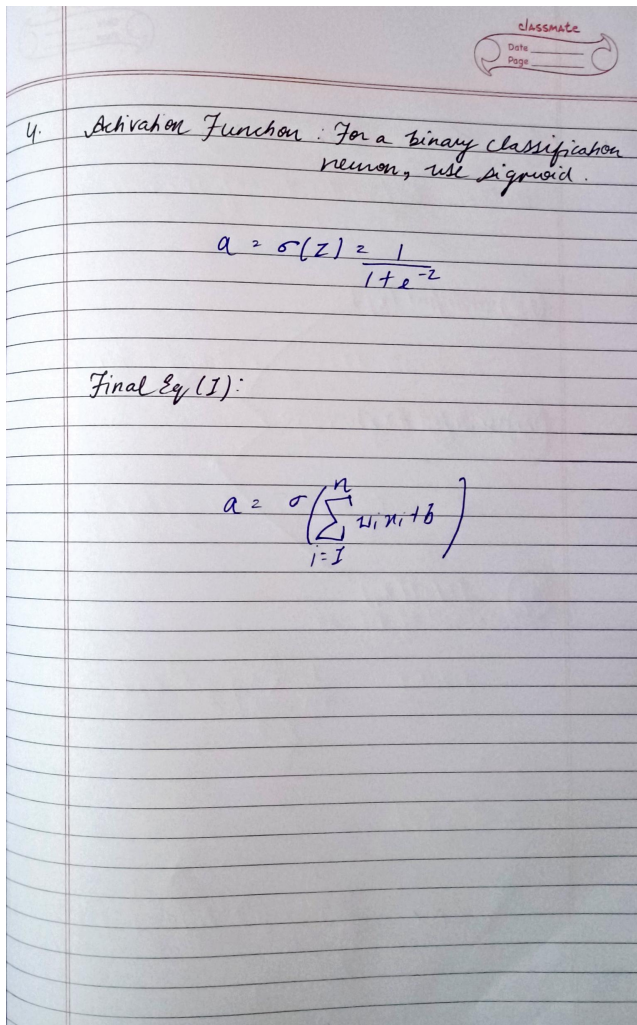 classmate
Date
Page
4. Activation Function : For a binary classification
neuron, use sigmoid.
a = σ(Z) = 1 / 1 + e^-z
Final Eq (I):
a = σ(∑_{i=I}^{n} w_i x_i + b)